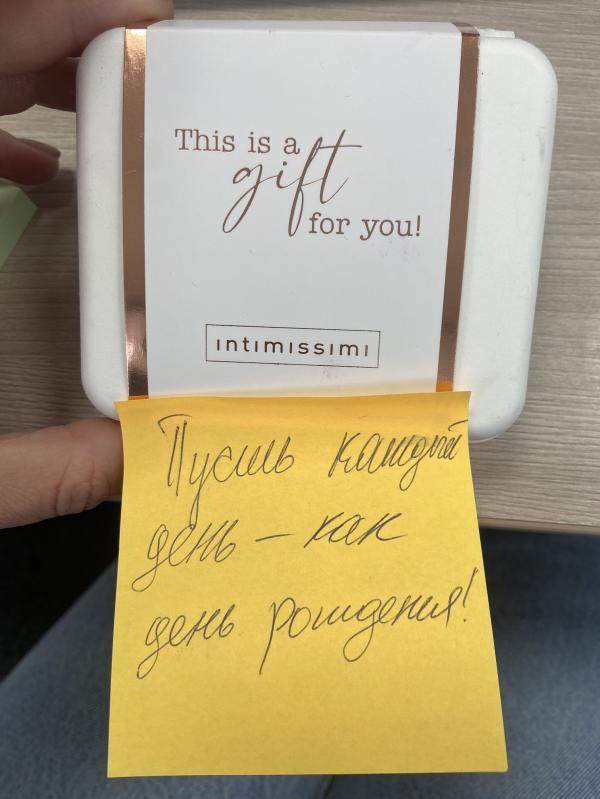 This is a
gift
for you!
intimissimi
Пусть каждый
день – как
день рождения!